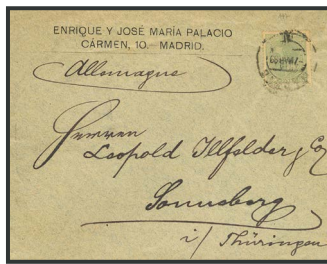 ENRIQUE Y JOSÉ MARÍA PALACIO
CÁRMEN, 10.—MADRID.
Allemagne
Herren
Leopold Illfelder & Co
Sonneberg
i/ Thüringen